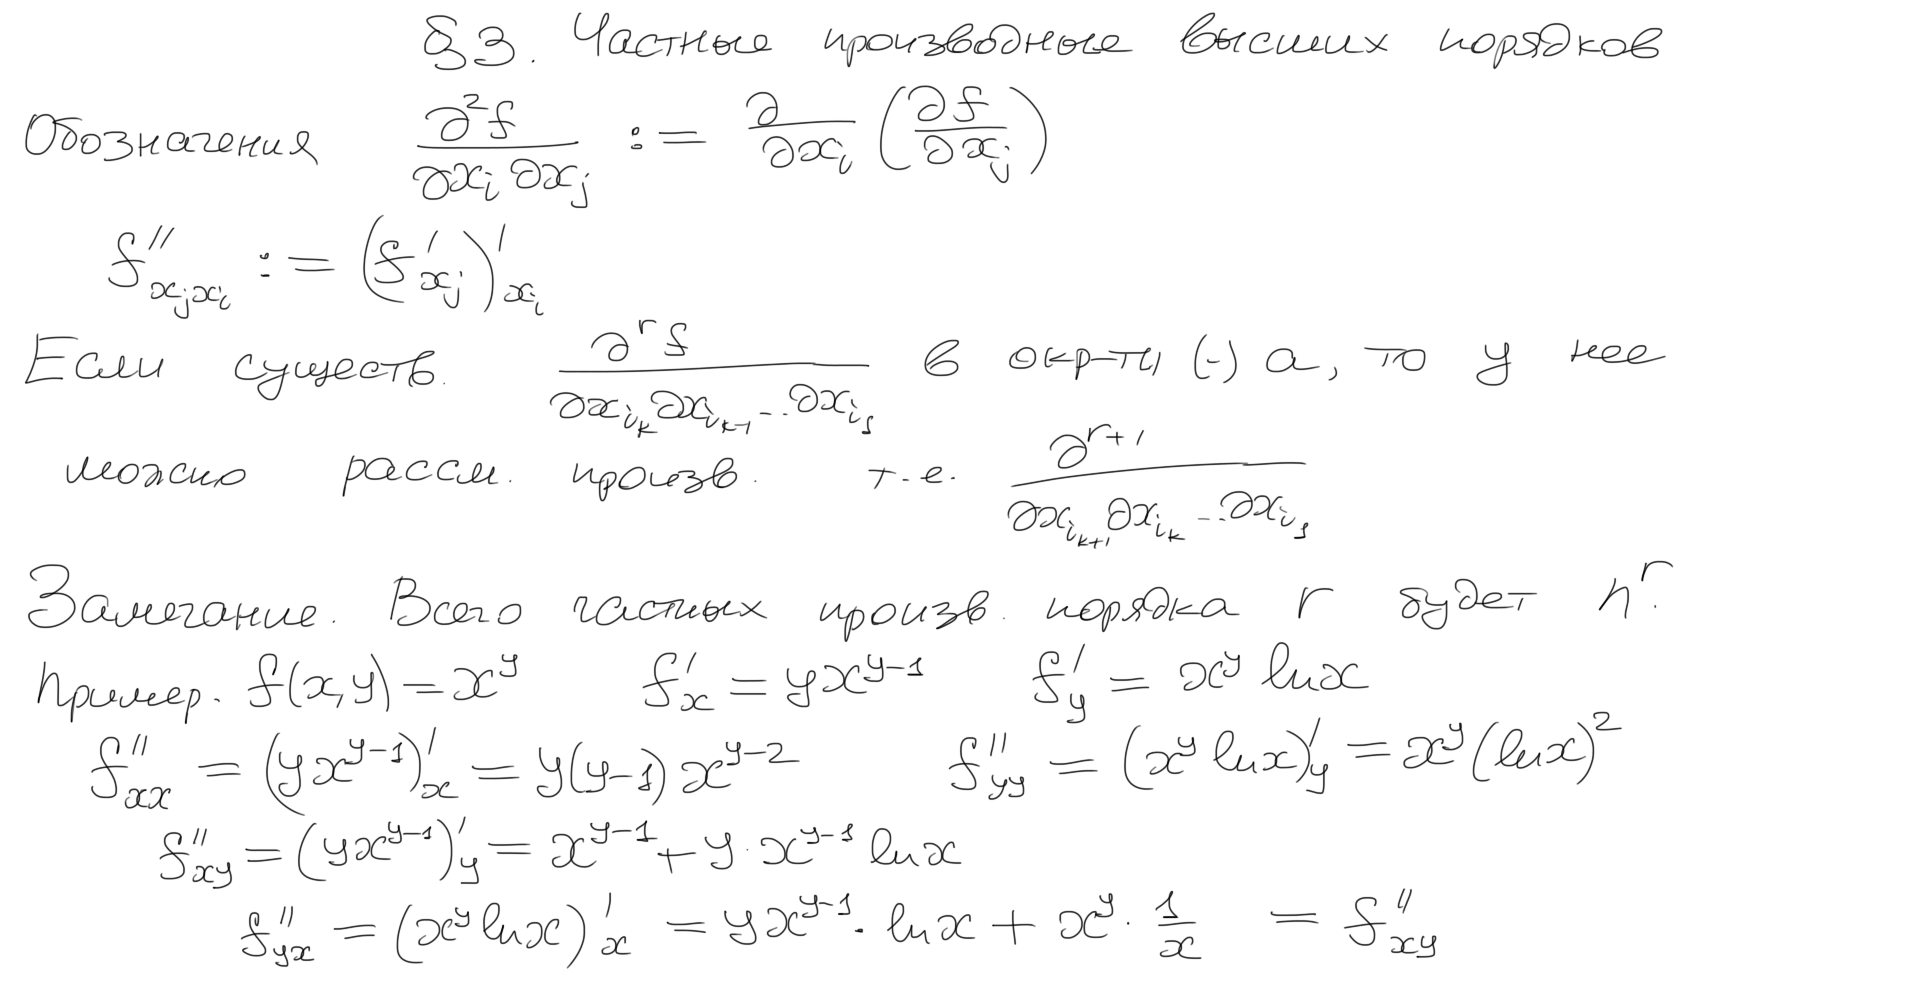 §3. Частные производные высших порядков
Обозначения ∂²f/(∂x_i ∂x_j) := ∂/∂x_i (∂f/∂x_j)
f''_{x_j x_i} := (f'_{x_j})'_{x_i}
Если существ. ∂^r f/(∂x_{i_k} ∂x_{i_{k-1}} ... ∂x_{i_1}) в окр-ти (·) a, то у нее
можно рассм. произв. т.е. ∂^{r+1}/(∂x_{i_{k+1}} ∂x_{i_k} ... ∂x_{i_1})
Замечание. Всего частных произв. порядка r будет n^r.
Пример. f(x,y) = x^y f'_x = yx^{y-1} f'_y = x^y ln x
f''_{xx} = (yx^{y-1})'_x = y(y-1)x^{y-2} f''_{yy} = (x^y ln x)'_y = x^y (ln x)^2
f''_{xy} = (yx^{y-1})'_y = x^{y-1} + y · x^{y-1} ln x
f''_{yx} = (x^y ln x)'_x = yx^{y-1} · ln x + x^y · 1/x = f''_{xy}